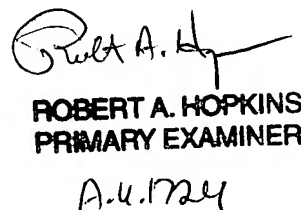 Robt A. H
ROBERT A. HOPKINS
PRIMARY EXAMINER
A.U. 1724